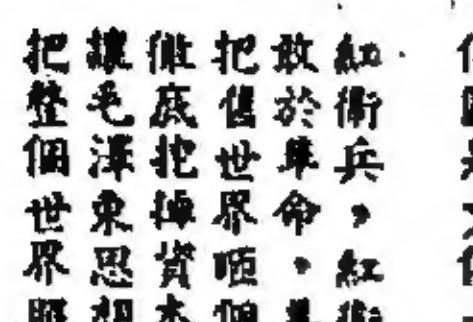 紅衛兵，紅衛
敢於革命，
把舊世界
徹底挖掉資本
讓毛澤東思想
把整個世界照